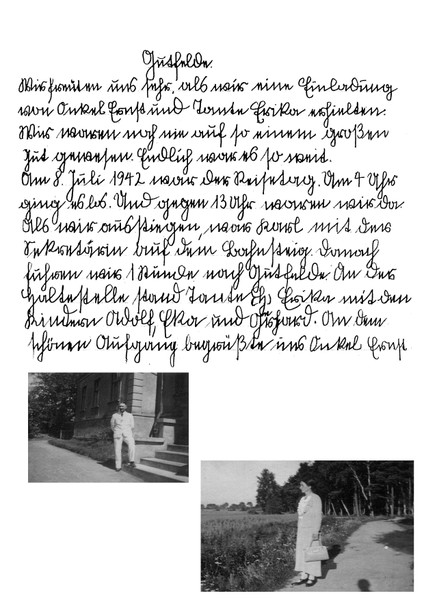 Gutfelde.
Wir freuten uns sehr, als wir eine Einladung
von Onkel Ernst und Tante Erika erhielten.
Wir waren noch nie auf so einem großen
Gut gewesen. Endlich war es so weit.
Am 8. Juli 1942 war der Reisetag. Um 4 Uhr
ging es los. Und gegen 13 Uhr waren wir da.
Als wir ausstiegen, war Karl mit der
Sekretärin auf dem Bahnsteig. Danach
fuhren wir 1 Stunde nach Gutfelde. An der
Haltestelle stand Tante Erika mit den
Kindern Adolf, Eka und Gerhard. An dem
schönen Aufgang begrüßte uns Onkel Ernst